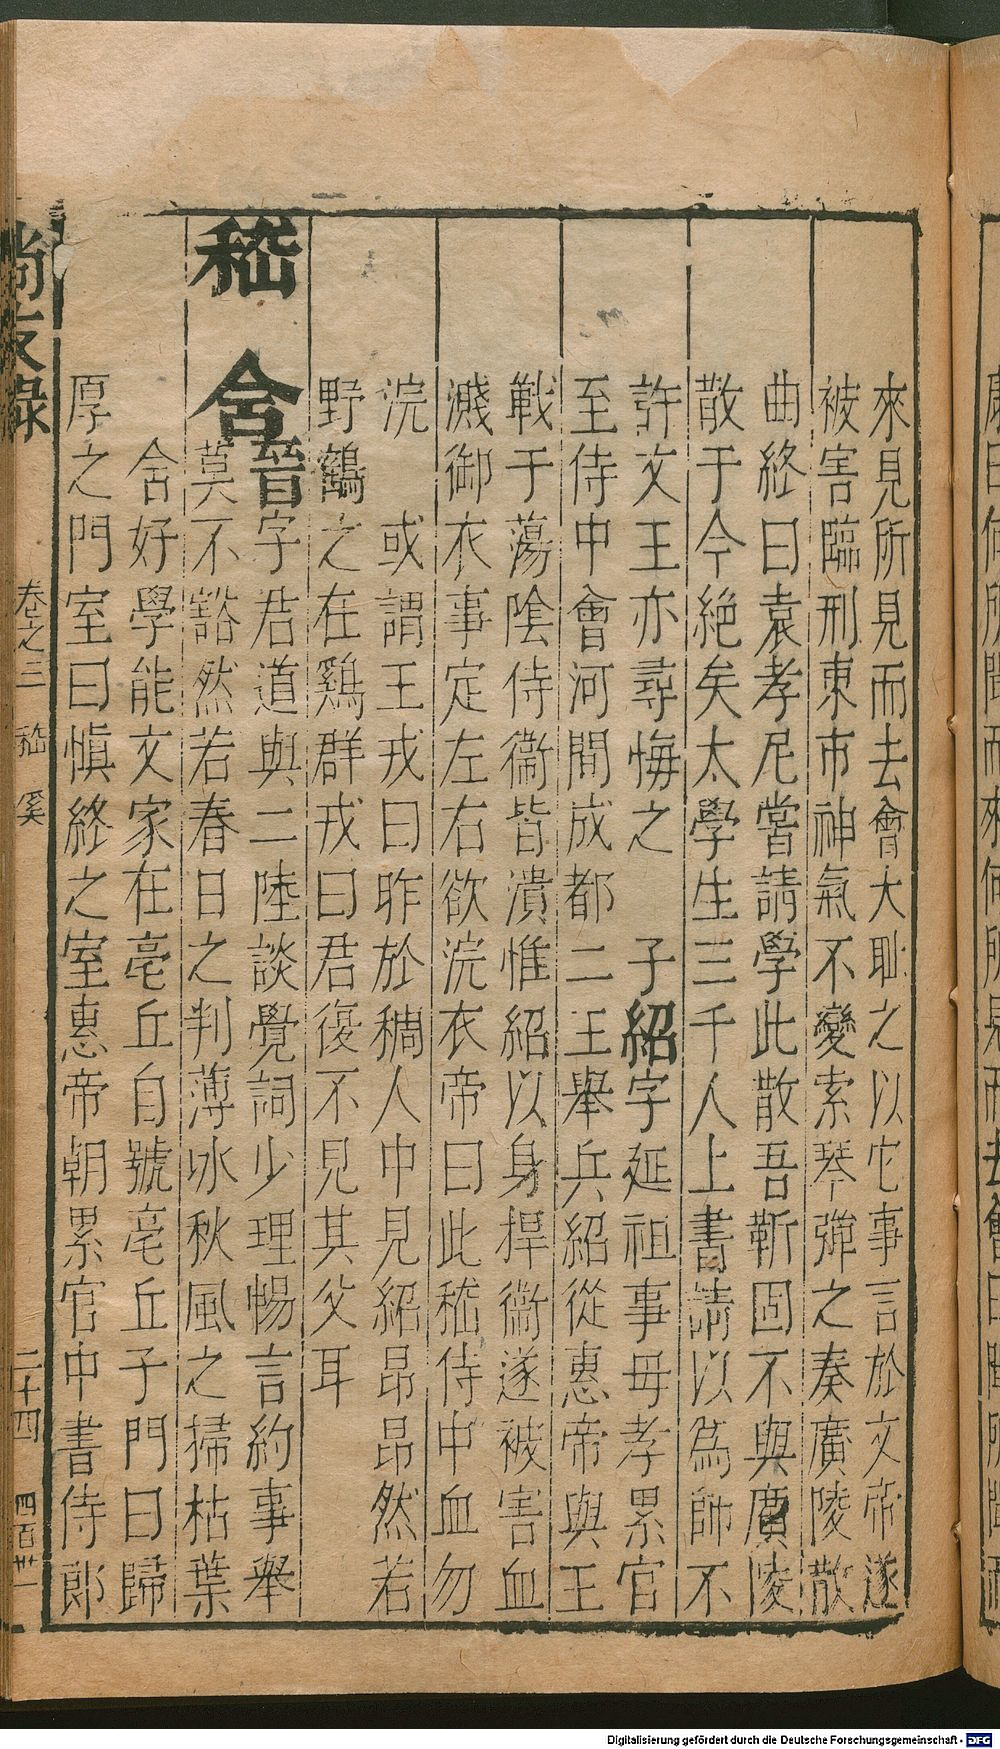 來見所見而去會大耻之以它事言於文帝遂
被害臨刑東市神氣不變索琴彈之奏廣陵散
曲終曰袁孝尼嘗請學此散吾靳固不與廣陵
散于今絕矣太學生三千人上書請以為師不
許文王亦尋悔之　子紹字延祖事母孝累官
至侍中會河間成都二王舉兵紹從惠帝與王
戰于蕩陰侍衞皆潰惟紹以身捍衞遂被害血
濺御衣事定左右欲浣衣帝曰此嵇侍中血勿
浣　或謂王戎曰昨於稠人中見紹昂昂然若
野鶴之在鷄群戎曰君復不見其父耳
嵇含晉字君道與二陸談覺詞少理暢言約事舉
莫不豁然若春日之判薄冰秋風之掃枯葉
含好學能文家在亳丘自號亳丘子門曰歸
厚之門室曰愼終之室惠帝朝累官中書侍郎
尚友錄　卷之三　嵇　奚　二十四　四百廿一
Digitalisierung gefördert durch die Deutsche Forschungsgemeinschaft - DFG